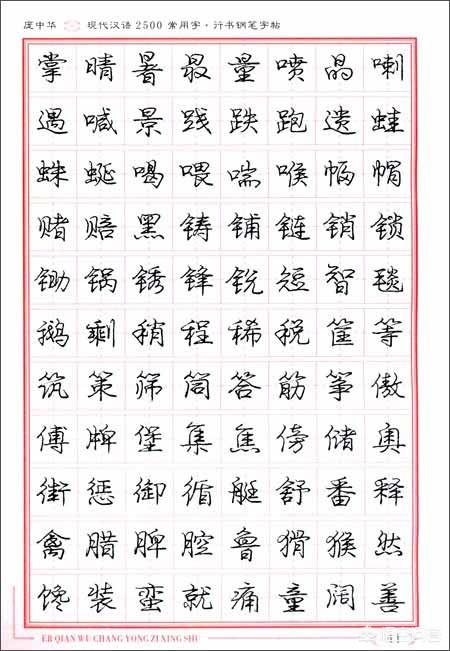 庞中华 现代汉语2500常用字·行书钢笔字帖
掌晴暑最量喷晶喇
遇喊景践跌跑遗蛙
蛛蜓喝喂喘喉幅帽
赌赔黑铸铺链销锁
锄锅锈锋锐短智毯
鹅剩稍程稀税筐等
筑策筛筒答筋筝傲
傅牌堡集焦傍储奥
街惩御循艇舒番释
禽腊脾腔鲁猾猴然
馋装蛮就痛童阔善
ER QIAN WU CHANG YONG ZI XING SHU